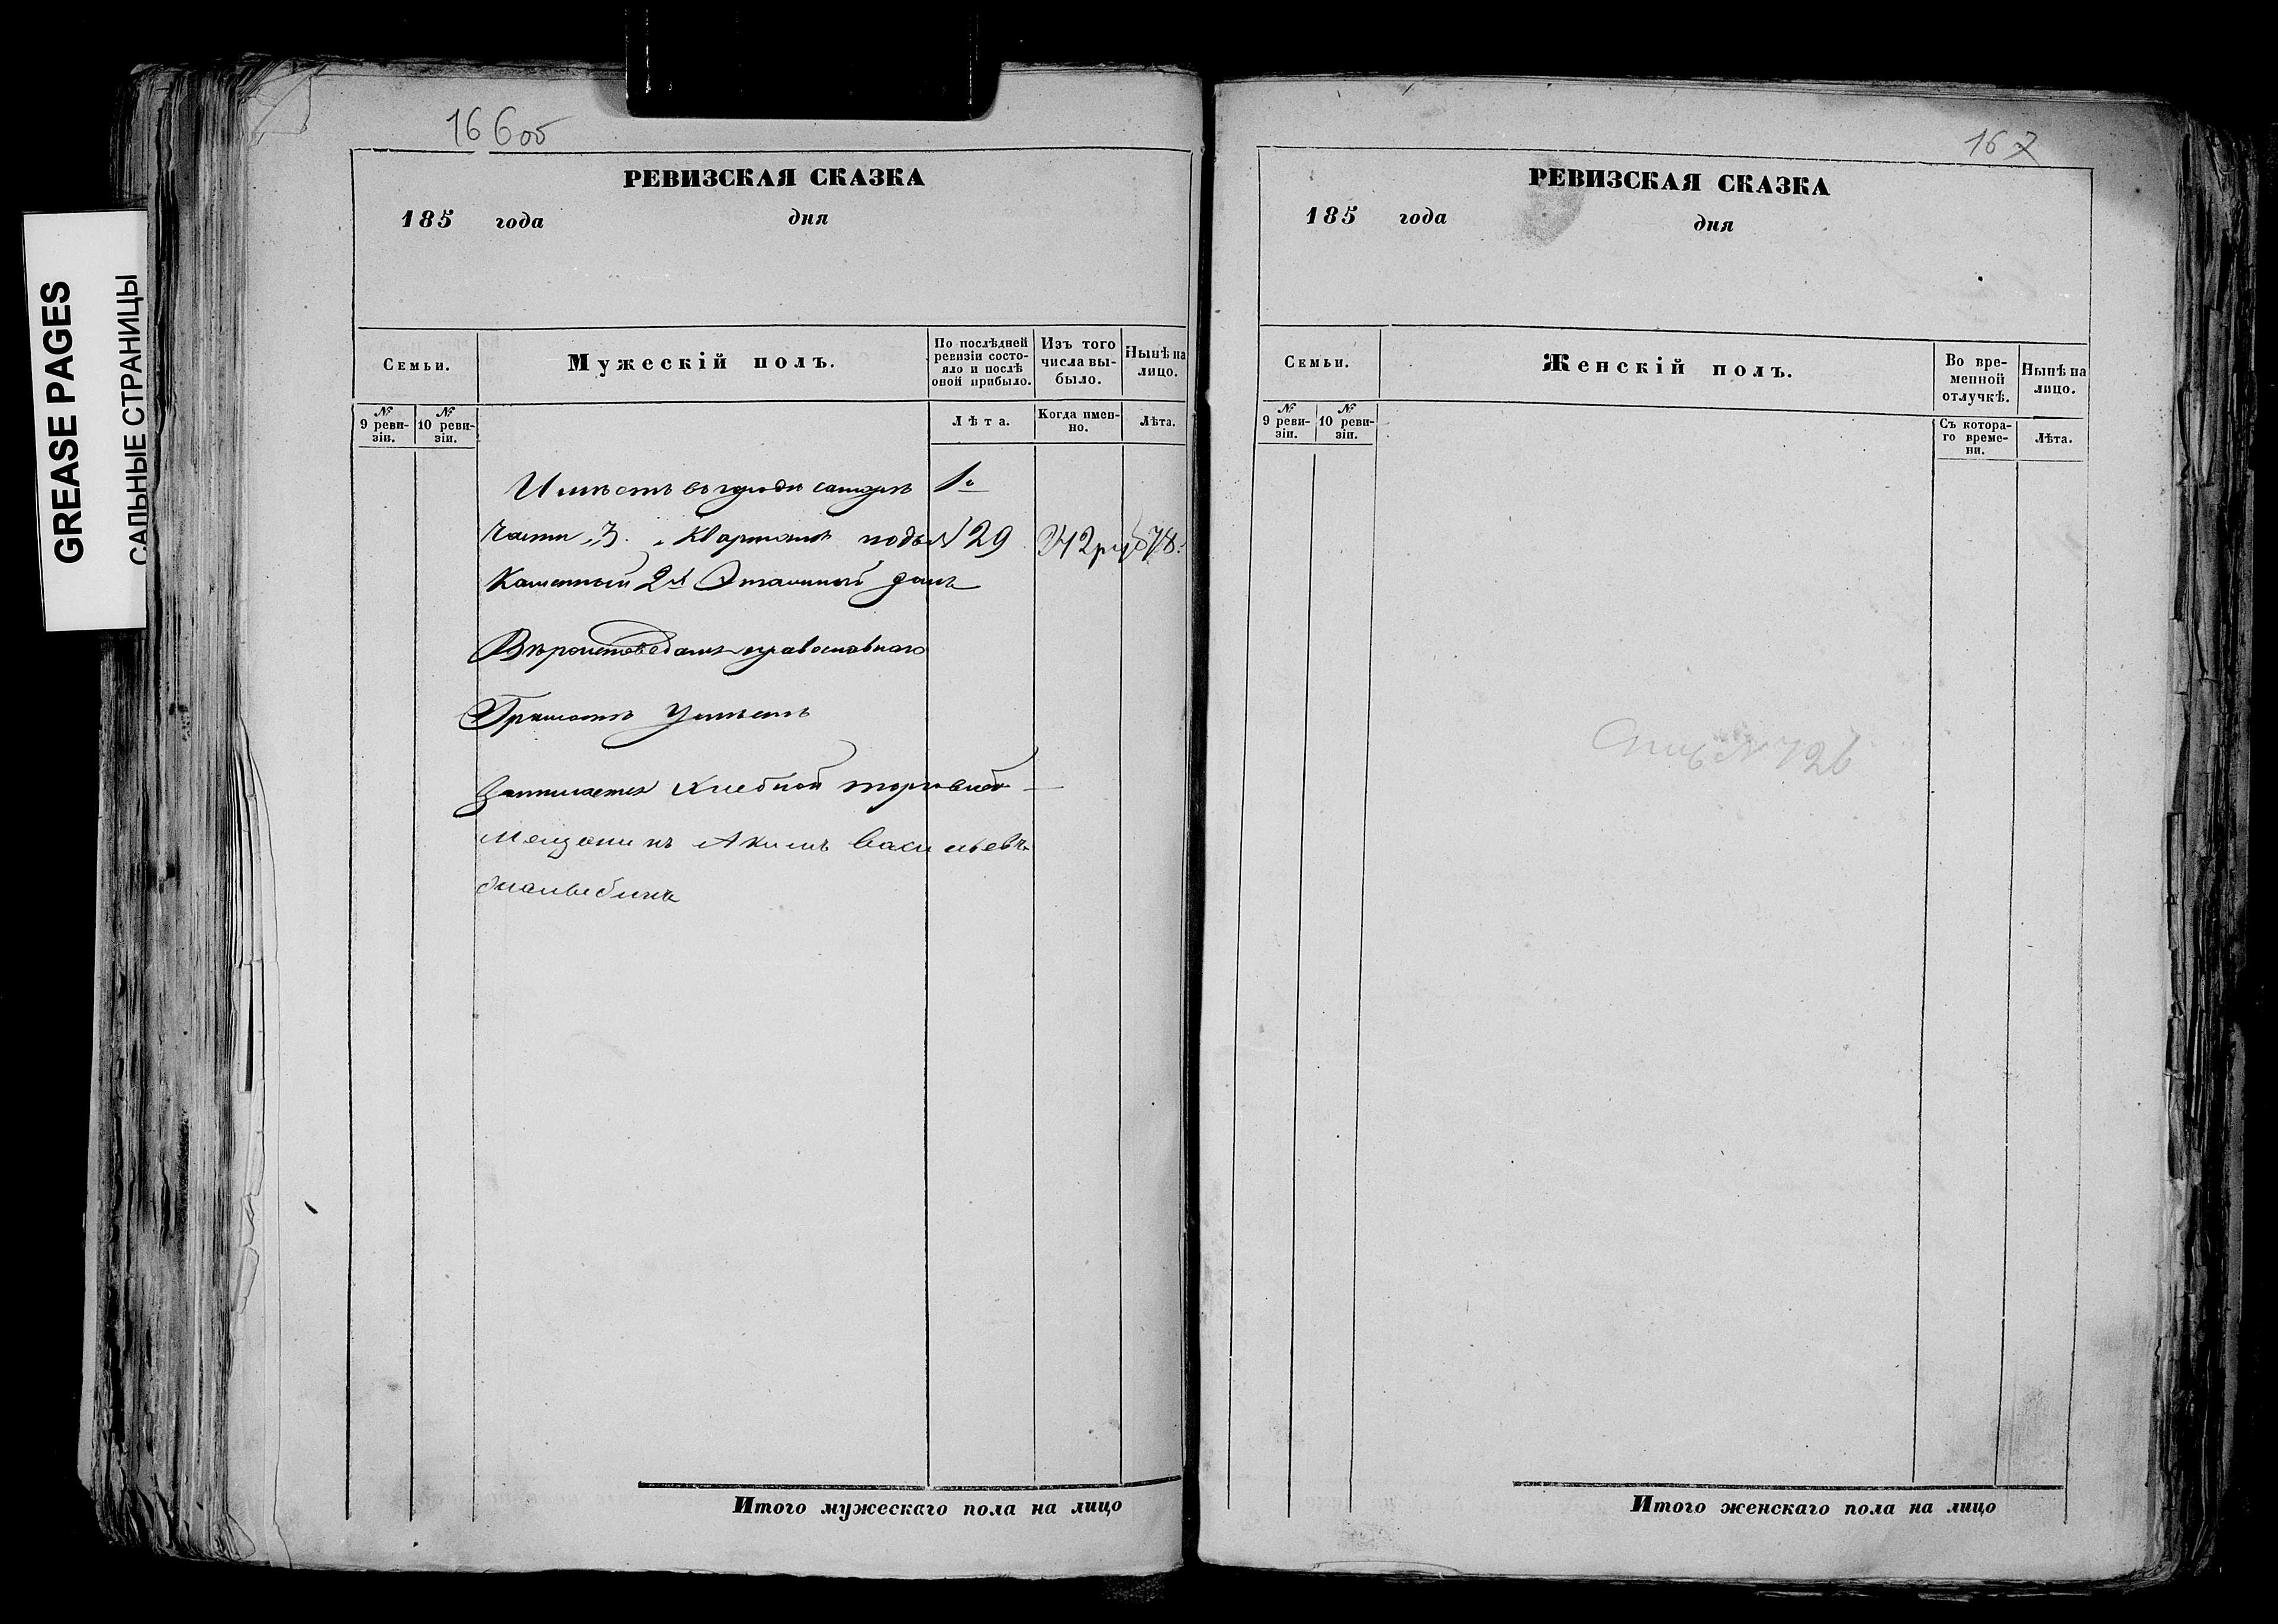 GREASE PAGES
САЛЬНЫЕ СТРАНИЦЫ
166об
РЕВИЗСКАЯ СКАЗКА
185 года дня
Семьи.
Мужескій полъ.
По послѣдней ревизіи состояло и послѣ оной прибыло.
Изъ того числа выбыло.
Нынѣ на лицо.
№ 9 ревизіи.
№ 10 ревизіи.
Лѣта.
Когда именно.
Лѣта.
Имѣетъ въ городѣ самарѣ 1й
части 3. кварталѣ подъ № 29 342 руб 78.
Каменный 2х Этажный домъ
Вѣроисповеданія православнаго
Грамотѣ Умѣетъ
Занимается хлебной торговлей
Мещанинъ Акимъ Васильевъ
167
РЕВИЗСКАЯ СКАЗКА
185 года дня
Семьи.
Женскій полъ.
Во временной отлучкѣ.
Нынѣ на лицо.
№ 9 ревизіи.
№ 10 ревизіи.
Съ котораго времени.
Лѣта.
№ 726
Итого мужескаго пола на лицо
Итого женскаго пола на лицо